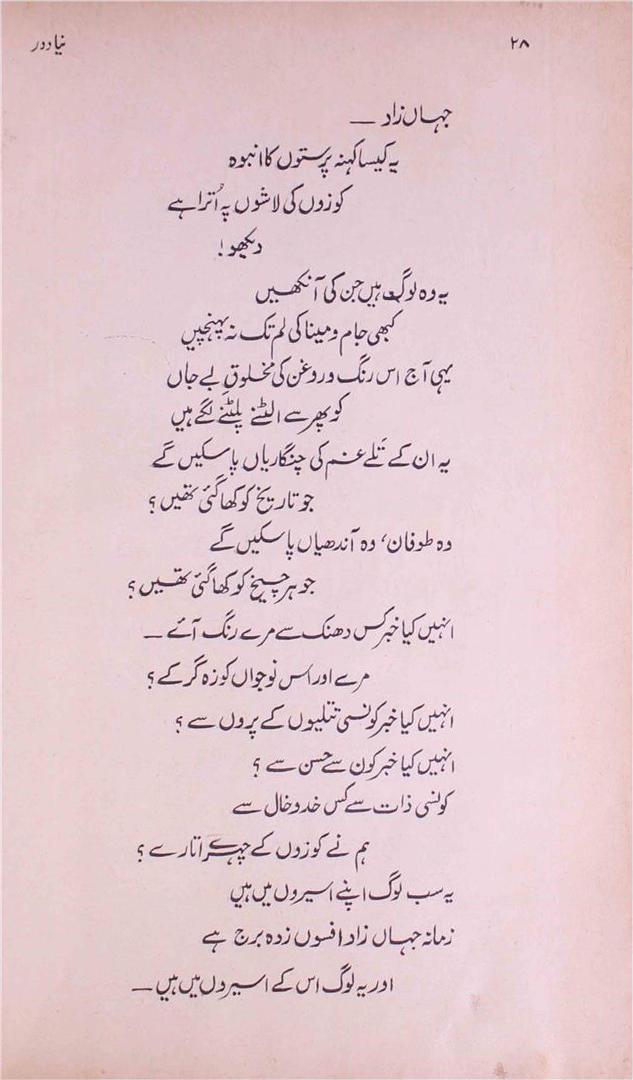 ۲۸
نیا دور
جہاں زاد —
یہ کیسا کہنہ پرستوں کا انبوہ
کوزوں کی لاشوں پہ اُترا ہے
دیکھو!
یہ وہ لوگ ہیں جن کی آنکھیں
کبھی جام و مینا کی لم تک نہ پہنچیں
یہی آج اس رنگ و روغن کی مخلوقِ بے جاں
کو پھر سے الٹنے پلٹنے لگے ہیں
یہ ان کے تَلے غم کی چنگاریاں پا سکیں گے
جو تاریخ کو کھا گئی تھیں؟
وہ طوفان، وہ آندھیاں پا سکیں گے
جو ہر چیخ کو کھا گئی تھیں؟
انہیں کیا خبر کس دھنک سے مرے رنگ آئے —
مرے اور اس نوجواں کوزہ گر کے؟
انہیں کیا خبر کونسی تتلیوں کے پروں سے؟
انہیں کیا خبر کون سے حسن سے؟
کونسی ذات سے کس خدوخال سے
ہم نے کوزوں کے چہرے اتارے؟
یہ سب لوگ اپنے اسیروں میں ہیں
زمانہ جہاں زاد افسوں زدہ برج ہے
اور یہ لوگ اس کے اسیروں میں ہیں —